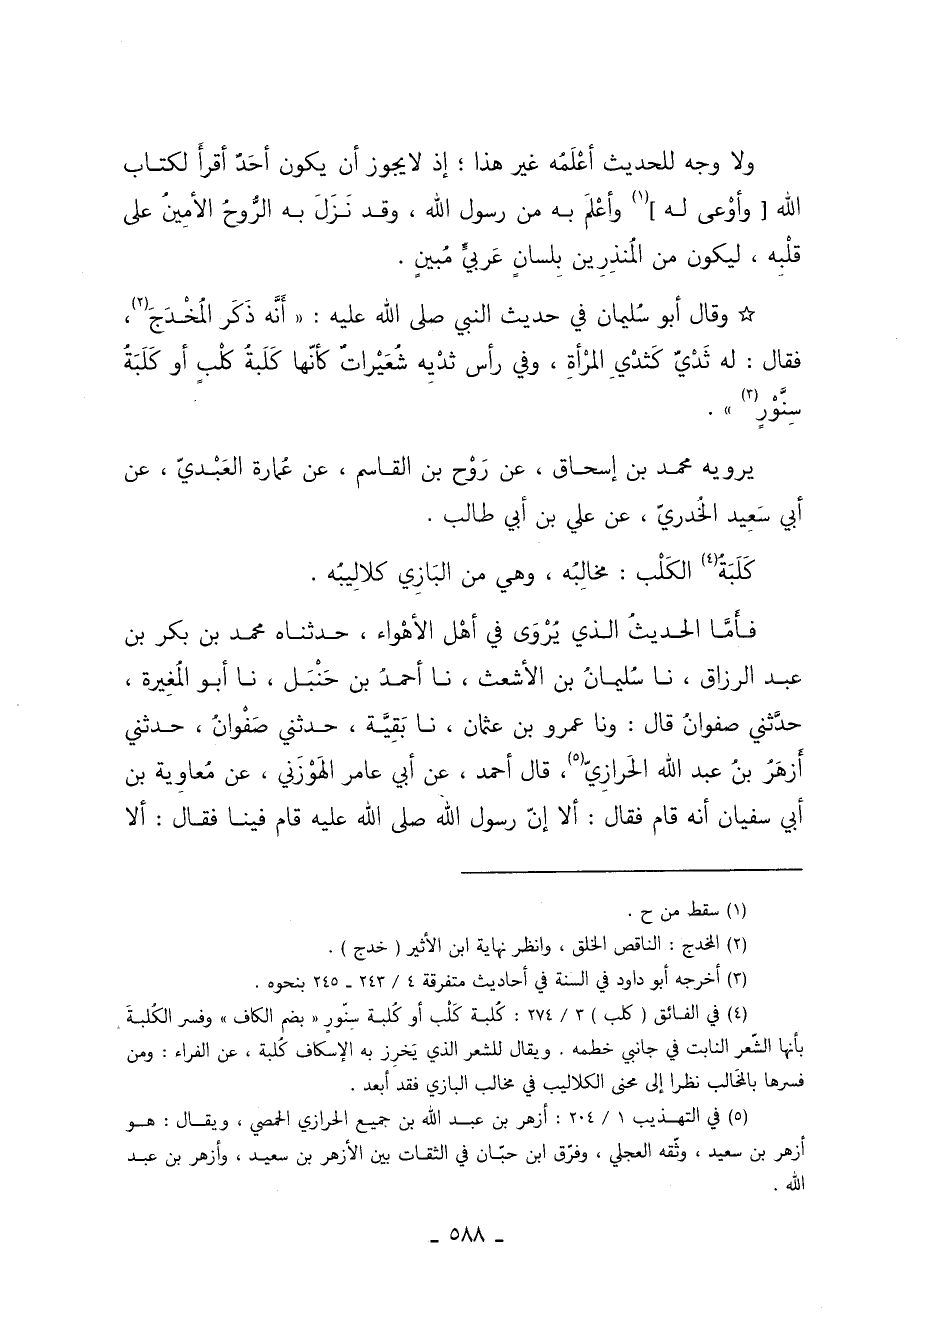 ولا وجه للحديث أعْلَمُه غير هذا ؛ إذ لايجوز أن يكون أحَدٌ أقرأَ لكتاب
الله [ وأوْعى له ](١) وأعْلَمَ به من رسول الله ، وقد نَزَلَ به الرُّوحُ الأمينُ على
قلْبه ، ليكون من المُنذِرين بلسانٍ عَربيٍّ مُبينٍ .
☆ وقال أبو سُليمان في حديث النبي صلى الله عليه : « أنَّه ذَكَر المُخْدَجَ(٢)،
فقال : له ثَدْيٌ كَثدْيِ المْرْأةِ ، وفي رأس ثدْيه شُعَيْراتٌ كأنّها كَلَبةُ كلْبٍ أو كَلَبَةُ
سِنَّوْرٍ(٣) » .
يرويه محمد بن إسحاق ، عن رَوْح بن القاسم ، عن عُمارة العَبْديّ ، عن
أبي سَعِيد الخُدريّ ، عن علي بن أبي طالب .
كَلَبَةُ(٤) الكَلْب : مخالبُه ، وهي من البَازِي كلالِيبُه .
فأَمَّا الحديثُ الذي يُرْوَى في أهْل الأهْواء ، حدثناه محمد بن بكر بن
عبد الرزاق ، نا سُليمانُ بن الأشعث ، نا أحمدُ بن حَنْبَل ، نا أبو المُغِيرة ،
حدَّثني صفوانُ قال : ونا عمرو بن عثمان ، نا بَقِيَّة ، حدثني صَفْوانُ ، حدثني
أزهَرُ بنُ عبد الله الحَرازيّ(٥)، قال أحمد ، عن أبي عامر الهَوْزَني ، عن مُعاوية بن
أبي سفيان أنه قام فقال : ألا إنّ رسول الله صلى الله عليه قام فينا فقال : ألا
(١) سقط من ح .
(٢) المخدج : الناقص الخلق ، وانظر نهاية ابن الأثير ( خدج ) .
(٣) أخرجه أبو داود في السنة في أحاديث متفرقة ٤ / ٢٤٣ ـ ٢٤٥ بنحوه .
(٤) في الفائق ( كلب ) ٣ / ٢٧٤ : كُلبة كَلْب أو كُلبة سنّورٍ « بضم الكاف » وفسر الكُلبة
بأنها الشّعر النابت في جانبي خطمه . ويقال للشعر الذي يَخرِز به الإسكاف كُلبة ، عن الفراء : ومن
فسرها بالمخَالب نظرا إلى محنى الكلاليب في مخالب البازي فقد أبعد .
(٥) في التهذيب ١ / ٢٠٤ : أزهر بن عبد الله بن جميع الحرازي الحمصي ، ويقال : هو
أزهر بن سعيد ، وثّقه العجلي ، وفرّق ابن حبّان في الثقات بين الأزهر بن سعيد ، وأزهر بن عبد
الله .
ـ ٥٨٨ ـ